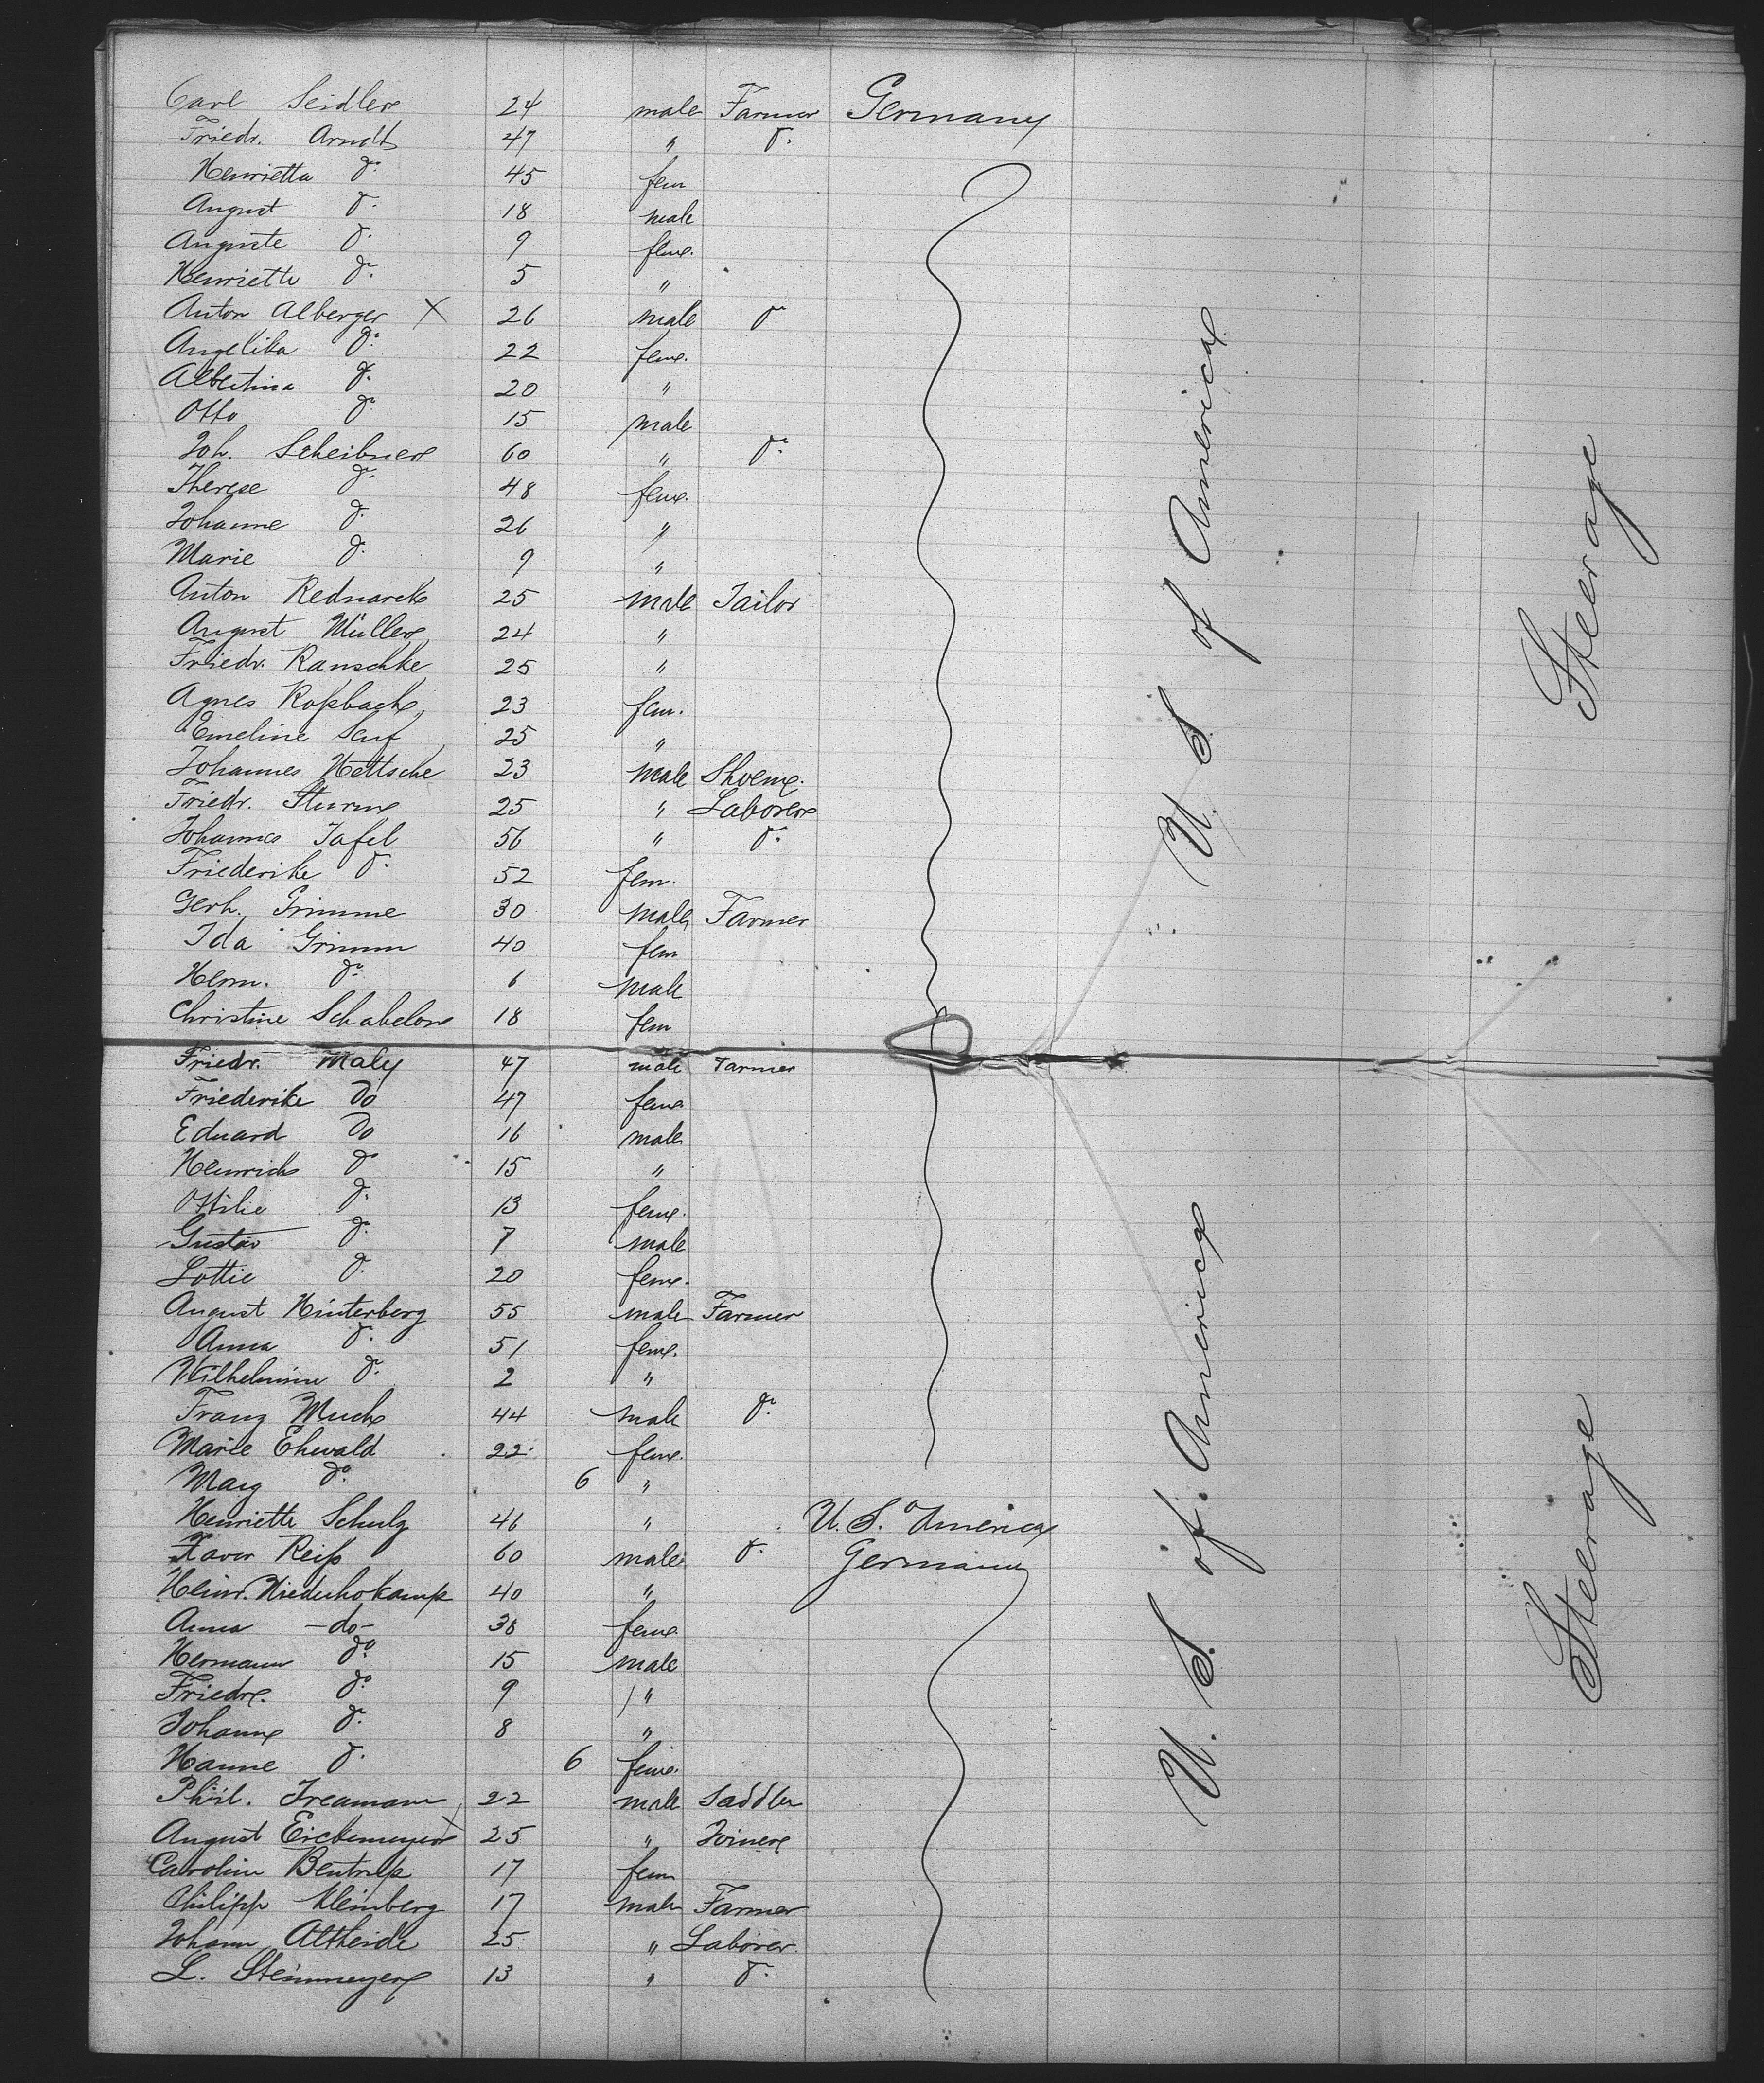 Carl Seidler 24 male Farmer Germany
Friedr. Arndt 47 " do.
Henrietta do. 45 fem
August do. 18 male
Auguste do. 9 fem.
Henriette do. 5 "
Anton Alberger X 26 male do
Angelika do. 22 fem.
Albertina do. 20 "
Otto do. 15 male
Joh. Scheibner 60 " do.
Therese do. 48 fem.
Johanne do. 26 "
Marie do. 9 "
Anton 25 male Tailor
August Müller 24 "
Friedr. Ranschke 25 "
Agnes Roßbach 23 fem.
Emeline Senf 25 "
Johannes Hettsche 23 male Shoem.
Friedr. Sturm 25 " Laborer
Johannes Tafel 56 " do.
Friederike do. 52 fem.
Gerh. Grimme 30 male Farmer
Ida Grimm 40 fem
Herm. do. 6 male
Christine Schabelon 18 fem
U. S. of America
Steerage
Friedr. Maly 47 male Farmer
Friederike Do 47 fem.
Eduard Do 16 male
Heinrich do 15 "
Ottilie do. 13 fem.
Gustav do. 7 male
Lottie do. 20 fem.
August Hinterberg 55 male Farmer
Anna do. 51 fem.
Wilhelmine do. 2 "
Franz Much 44 male do.
Marie Ehwald 22 fem.
Marg do. 6 "
Henriette Schulz 46 " U. S. America
Xaver Reiß 60 male do. Germany
Heinr. 40 "
Anna -do- 38 fem.
Hermann do. 15 male
Friedr. do. 9 "
Johann do. 8 "
Hanne do. 6 fem.
Phil. 22 male Saddler
August X 25 " Joiner
Carolin Bentrup 17 fem
Philipp Kleinberg 17 male Farmer
Johann Altheide 25 " Laborer
L. Steinmeyer 13 " do.
U. S. of America
Steerage